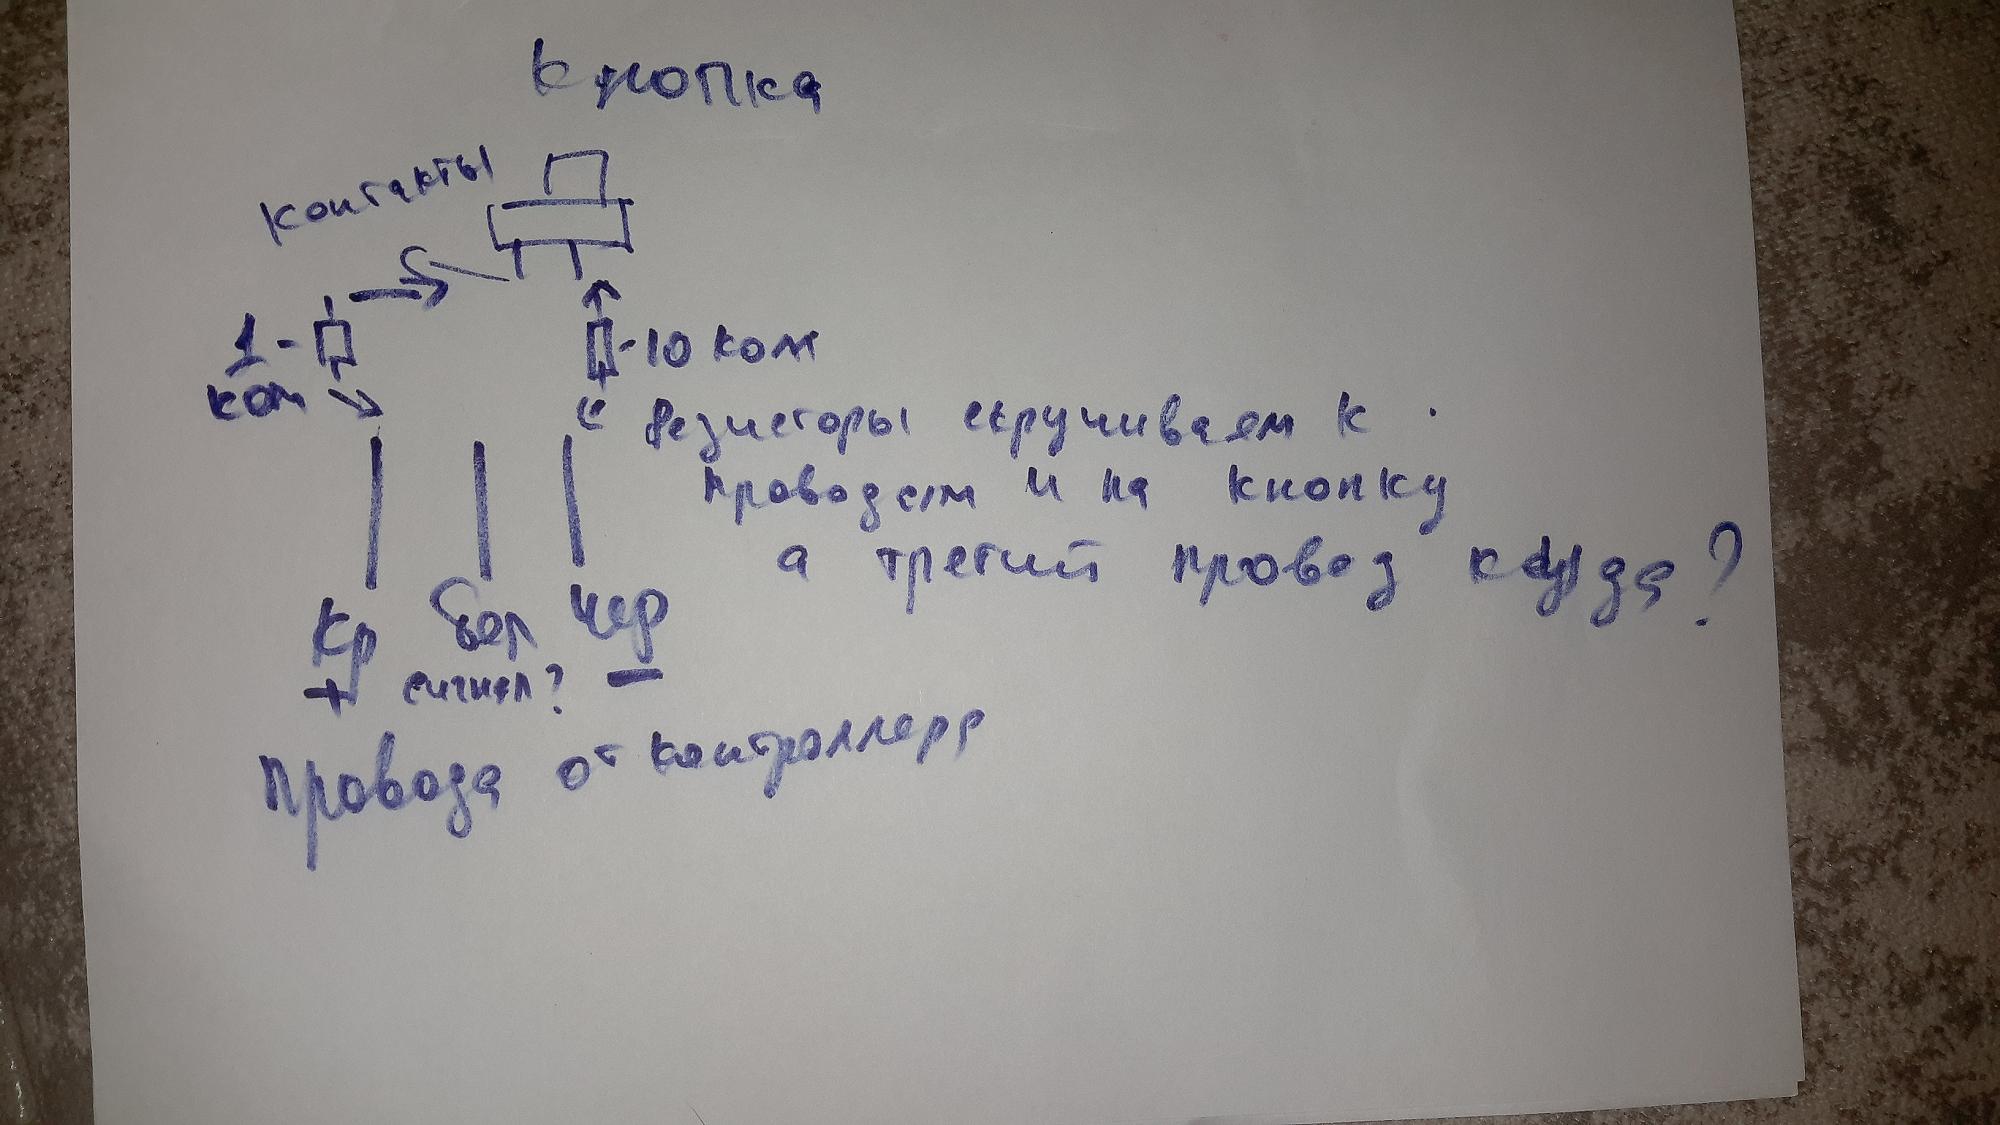 Кнопка
контакты
1 -
ком
- 10 ком
Резисторы скручиваем к
проводам и на кнопку
а третий провод куда?
Кр бел чер
+ сигнал? −
Провода от контроллера